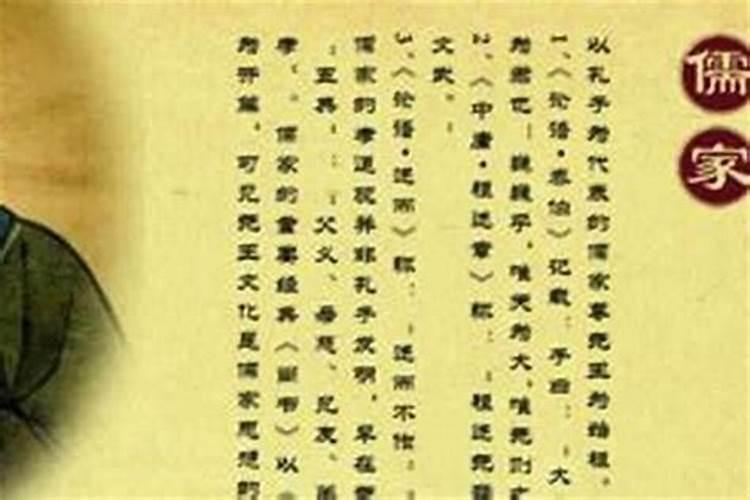 儒家
以孔子为代表的儒家尊尧王为始祖。
1、《论语·泰伯》记载：子曰：“大
为君也！巍巍乎，唯天为大，唯尧则之
2、《中庸·祖述章》称：“祖述尧舜
文武。”
3、《论语·述而》称：“述而不作。
儒家的孝道观并非孔子发明，早在
“五典”：“父义、母慈、兄友、弟
孝”。儒家的重要经典《尚书》以
为开篇，可见尧王文化是儒家思想的